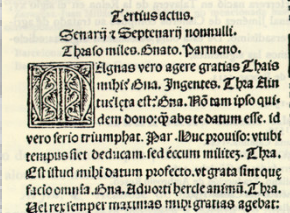 Tertius actus.
Senarij ⁊ Septenarij nonnulli.
Thraso miles. Gnato. Parmeno.
MAgnas vero agere gratias Thais
mihi? Gna. Ingentes. Thra Ain
tu: lęta est? Gna. Nō tam ipso qui
dem dono: ꝙ abs te datum esse. id
vero serio triumphat. Par. Huc prouiso: vt vbi
tempus siet deducam. sed éccum militeʒ. Thra.
Est istud mihi datum profecto. vt grata sint quę
facio omnia. Gna. Aduorti hercle animū. Thra.
Uel rex semper maximas mihi gratias agebat: